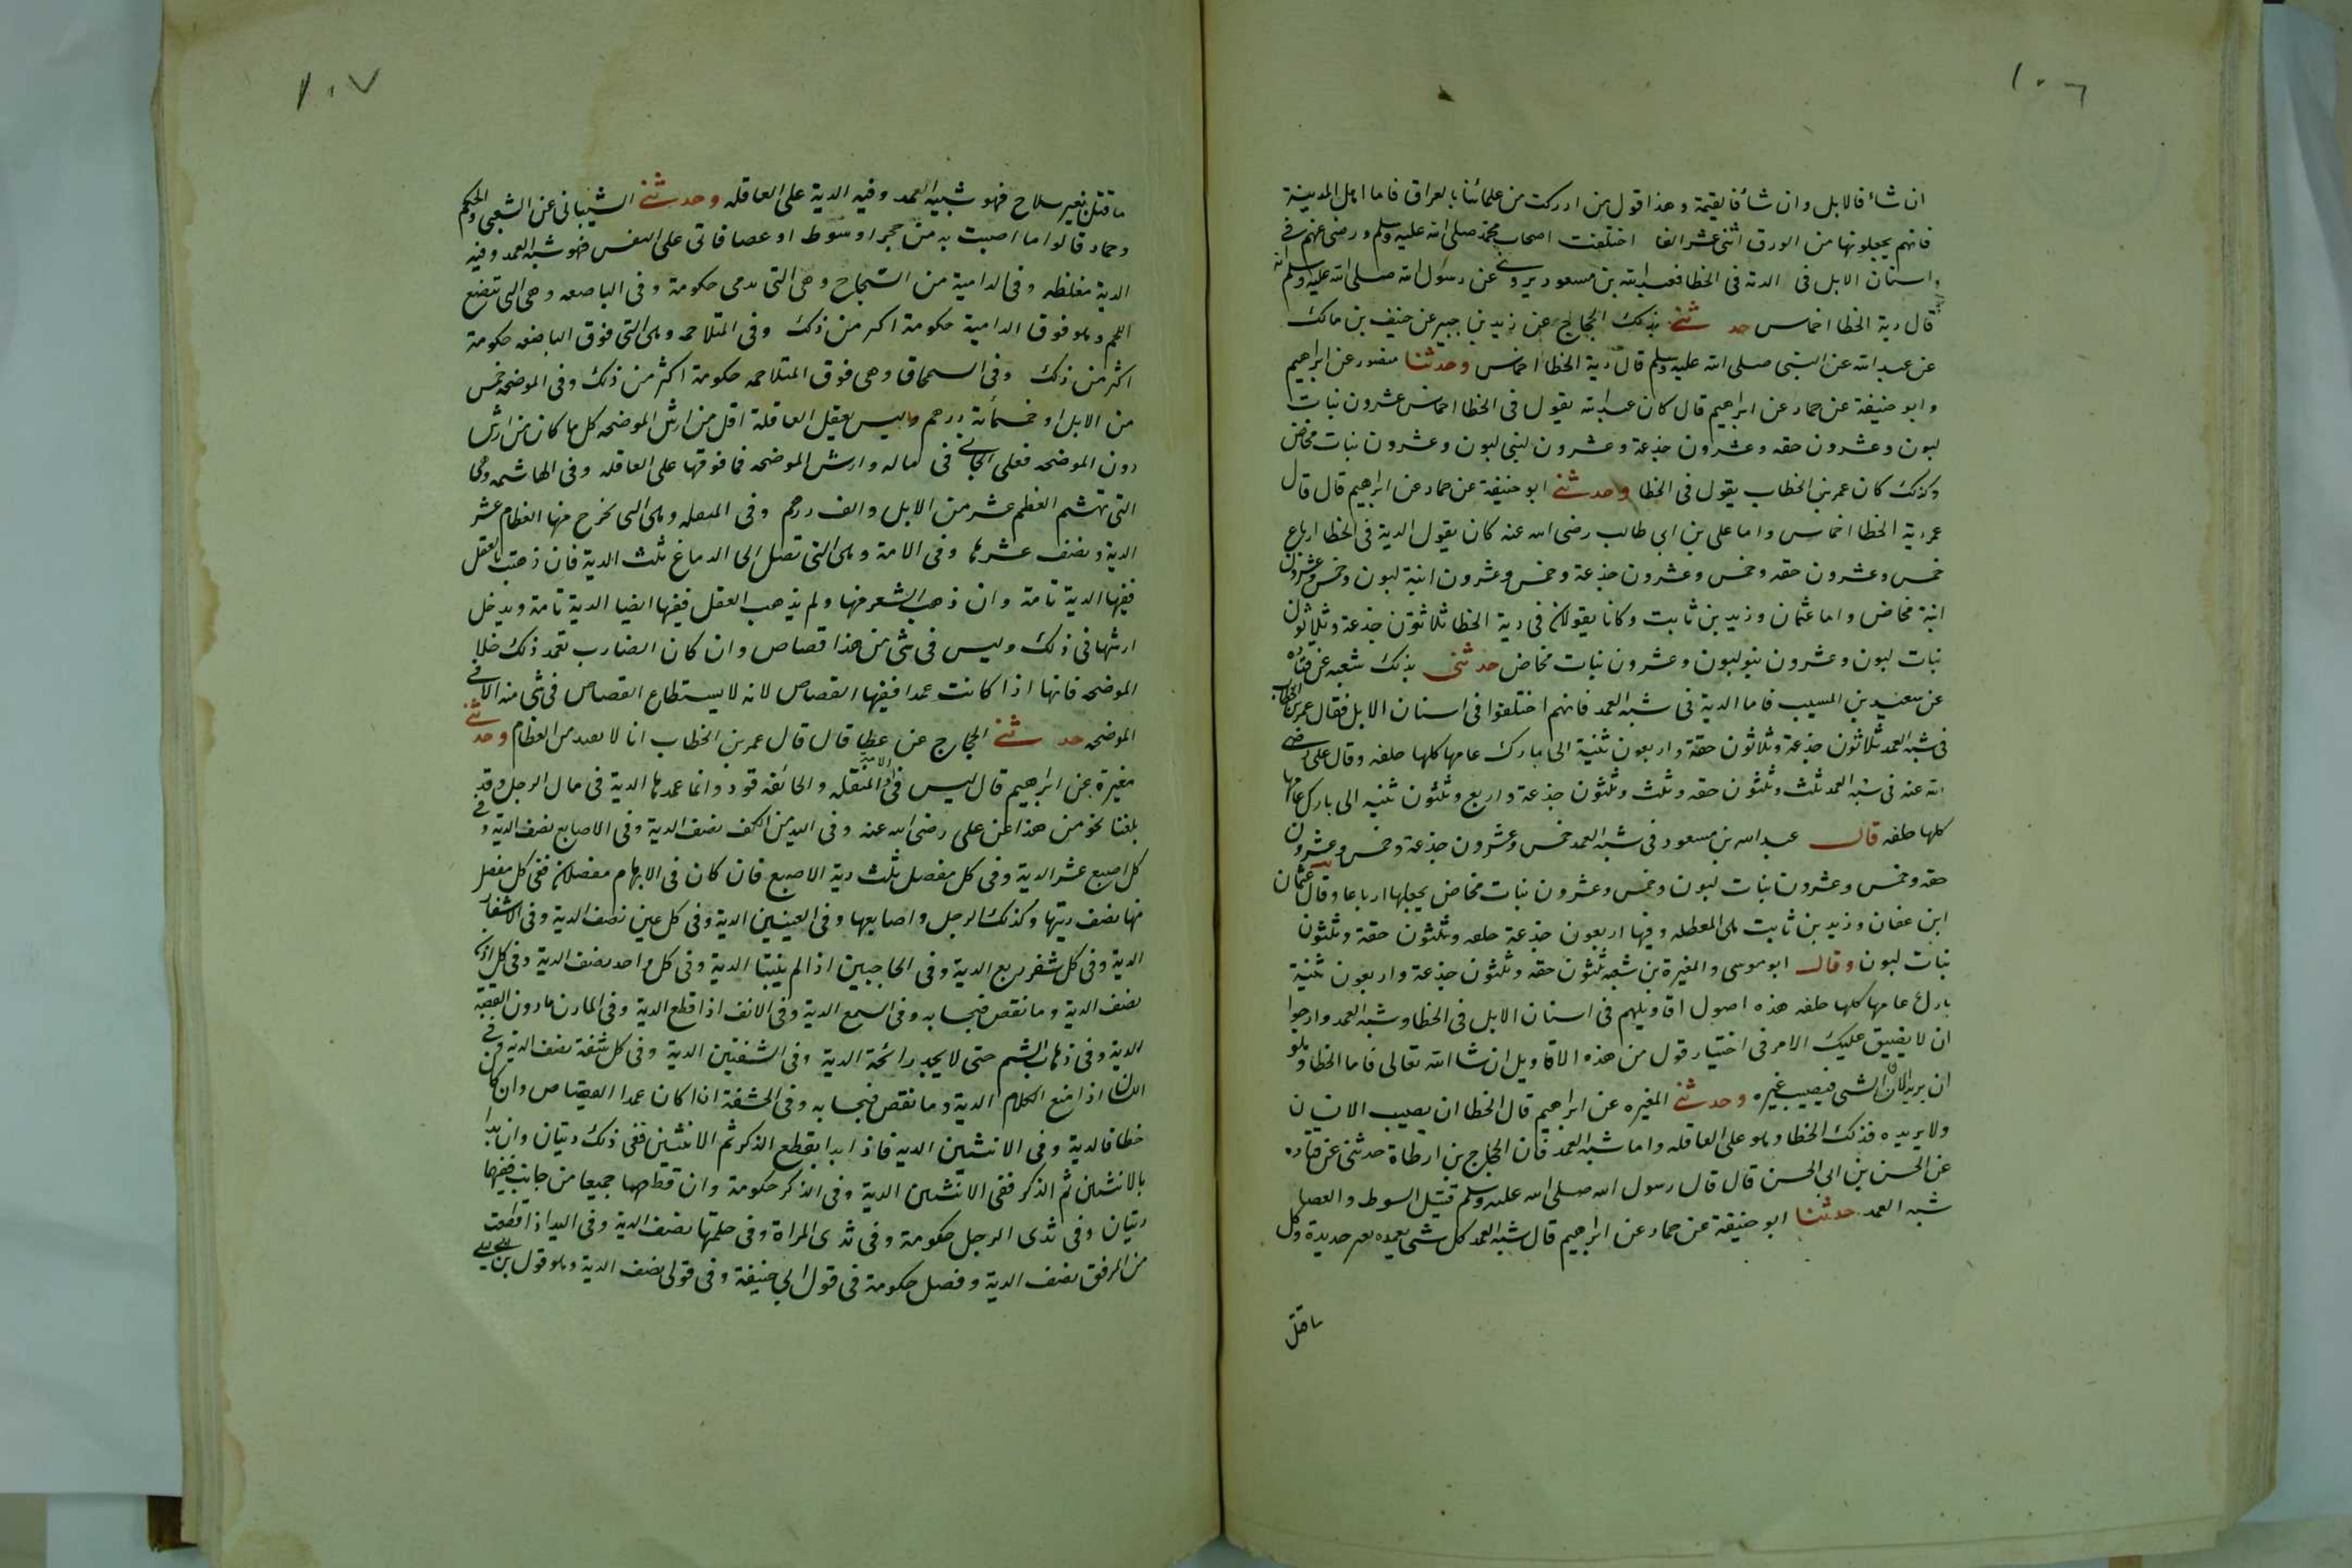 ١٠٦
ان شاء فالابل وان شاء فالقيمة وهذا قول من ادركت من علمائنا بالعراق فاما اهل المدينة
فانهم يجعلونها من الورق اثنى عشر الفا اختلفت اصحاب محمد صلى الله عليه وسلم ورضى عنهم فى
اسنان الابل فى الدية فى الخطا فعبد الله بن مسعود يروى عن رسول الله صلى الله عليه وسلم انه
قال دية الخطا اخماس حدثنى بذلك الحجاج عن زيد بن جبير عن خنيف بن مالك
عن عبد الله عن النبى صلى الله عليه وسلم قال دية الخطا اخماس وحدثنا منصور عن ابراهيم
وابو حنيفة عن حماد عن ابراهيم قال كان عبد الله يقول فى الخطا اخماس عشرون بنات
لبون وعشرون حقه وعشرون جذعة وعشرون لبنى لبون وعشرون بنات مخاض
وكذلك كان عمر بن الخطاب يقول فى الخطا وحدثنى ابو حنيفة عن حماد عن ابراهيم قال قال
عمر دية الخطا اخماس واما على بن ابى طالب رضى الله عنه كان يقول الدية فى الخطا ارباع
خمس وعشرون حقه وخمس وعشرون جذعة وخمس وعشرون ابنة لبون وخمس وعشرون
ابنة مخاض واما عثمان وزيد بن ثابت وكانا يقولان فى دية الخطا ثلاثون جذعة وثلاثون
بنات لبون وعشرون بنو لبون وعشرون بنات مخاض حدثنى بذلك شعبه عن قتاده
عن سعيد بن المسيب فاما الدية فى شبه العمد فانهم اختلفوا فى اسنان الابل فقال عمر بن الخطاب
فى شبه العمد ثلاثون جذعة وثلاثون حقة واربعون ثنية الى بازل عامها كلها خلفه وقال على رضى
الله عنه فى شبه العمد ثلث وثلثون حقه وثلث وثلثون جذعة واربع وثلثون ثنيه الى بازل عامها
كلها خلفه قال عبد الله بن مسعود فى شبه العمد خمس وعشرون جذعة وخمس وعشرون
حقه وخمس وعشرون بنات لبون وخمس وعشرون بنات مخاض يجعلها ارباعا وقال عثمان
ابن عفان وزيد بن ثابت هى المغلظه وفيها اربعون جذعة خلفه وثلثون حقة وثلثون
بنات لبون وقال ابو موسى والمغيرة بن شعبه ثلثون حقه وثلثون جذعة واربعون ثنية
بازل عامها كلها خلفه هذه اصول اقاويلهم فى اسنان الابل فى الخطا وشبه العمد وارجوا
ان لا يضيق عليك الامر فى اختيار قول من هذه الاقاويل ان شا الله تعالى فاما الخطا وهو
ان يريد الانسان الشى فيصيب غيره وحدثنى المغيره عن ابراهيم قال الخطا ان يصيب الانسان
ولا يريده فذلك الخطا وهو على العاقله واما شبه العمد فان الحجاج بن ارطاة حدثنى عن قتاده
عن الحسن بن ابى الحسن قال قال رسول الله صلى الله عليه وسلم قتيل السوط والعصا
شبه العمد حدثنا ابو حنيفة عن حماد عن ابراهيم قال شبه العمد كل شى يعمده بغير حديدة وكل
ما قتل
١٠٧
ما قتل بغير سلاح فهو شبيه العمد وفيه الدية على العاقله وحدثنى الشيبانى عن الشعبى والحكم
وحماد قالوا ما اصبت به من حجر او سوط او عصا فاتى على النفس فهو شبه العمد وفيه
الدية مغلظه وفى الدامية من الشجاج وهى التى تدمى حكومة وفى الباضعه وهى التى تبضع
اللحم وهو فوق الدامية حكومة اكثر من ذلك وفى المتلاحمه وهى التى فوق الباضعه حكومة
اكثر من ذلك وفى السمحاق وهى فوق المتلاحمه حكومة اكثر من ذلك وفى الموضحه خمس
من الابل او خمسمائة درهم وليس يعقل العاقلة اقل من ارش الموضحه كل ما كان من ارش
دون الموضحه فعلى الجانى فى ماله وارش الموضحه فما فوقها على العاقله وفى الهاشمه وهى
التى تهشم العظم عشر من الابل والف درهم وفى المنقله وهى التى تخرج منها العظام عشر
الدية ونصف عشرها وفى الامة وهى التى تصل الى الدماغ ثلث الدية فان ذهبت بالعقل
ففيها الدية تامة وان ذهب الشعر منها ولم يذهب العقل ففيها ايضا الدية تامة ويدخل
ارشها فى ذلك وليس فى شى من هذا قصاص وان كان الضارب تعمد ذلك خلا
الموضحه فانها اذا كانت عمدا ففيها القصاص لانه لا يستطاع القصاص فى شى منه الا فى
الموضحه حدثنى الحجاج عن عطا قال قال عمر بن الخطاب انا لا نقيد من العظام وحدثنى
مغيرة عن ابراهيم قال ليس فى الامة والمنقله والجائفه قود وانما عمدها الدية فى مال الرجل وقد
بلغنا نحو من هذا عن على رضى الله عنه وفى اليد من الكف نصف الدية وفى الاصابع نصف الدية وفى
كل اصبع عشر الدية وفى كل مفصل ثلث دية الاصبع فان كان فى الابهام مفصلان ففى كل مفصل
منها نصف ديتها وكذلك الرجل واصابعها وفى العينين الدية وفى كل عين نصف الدية وفى الاشفار
الدية وفى كل شفر ربع الدية وفى الحاجبين اذا لم ينبتا الدية وفى كل واحد نصف الدية وفى كل اذن
نصف الدية وما نقص فبحسابه وفى السمع الدية وفى الانف اذا قطع الدية وفى المارن ما دون القصبة
الدية وفى ذهاب الشم حتى لا يجد رائحة الدية وفى الشفتين الدية وفى كل شفة نصف الدية وفى
اللسان اذا منع الكلام الدية وما نقص فبحسابه وفى الحشفة اذا كان عمدا القصاص وان كان
خطا فالدية وفى الانثيين الدية فاذا بدا بقطع الذكر ثم الانثيين ففى ذلك ديتان وان بدا
بالانثيين ثم الذكر ففى الانثيين الدية وفى الذكر حكومة وان قطعهما جميعا من جانب ففيهما
ديتان وفى ثدى الرجل حكومة وفى ثدى المراة وفى حلمتها نصف الدية وفى اليد اذا قطعت
من المرفق نصف الدية وفصل حكومة فى قول ابى حنيفة وفى قولى نصف الدية وهو قول ابن ابى ليلى